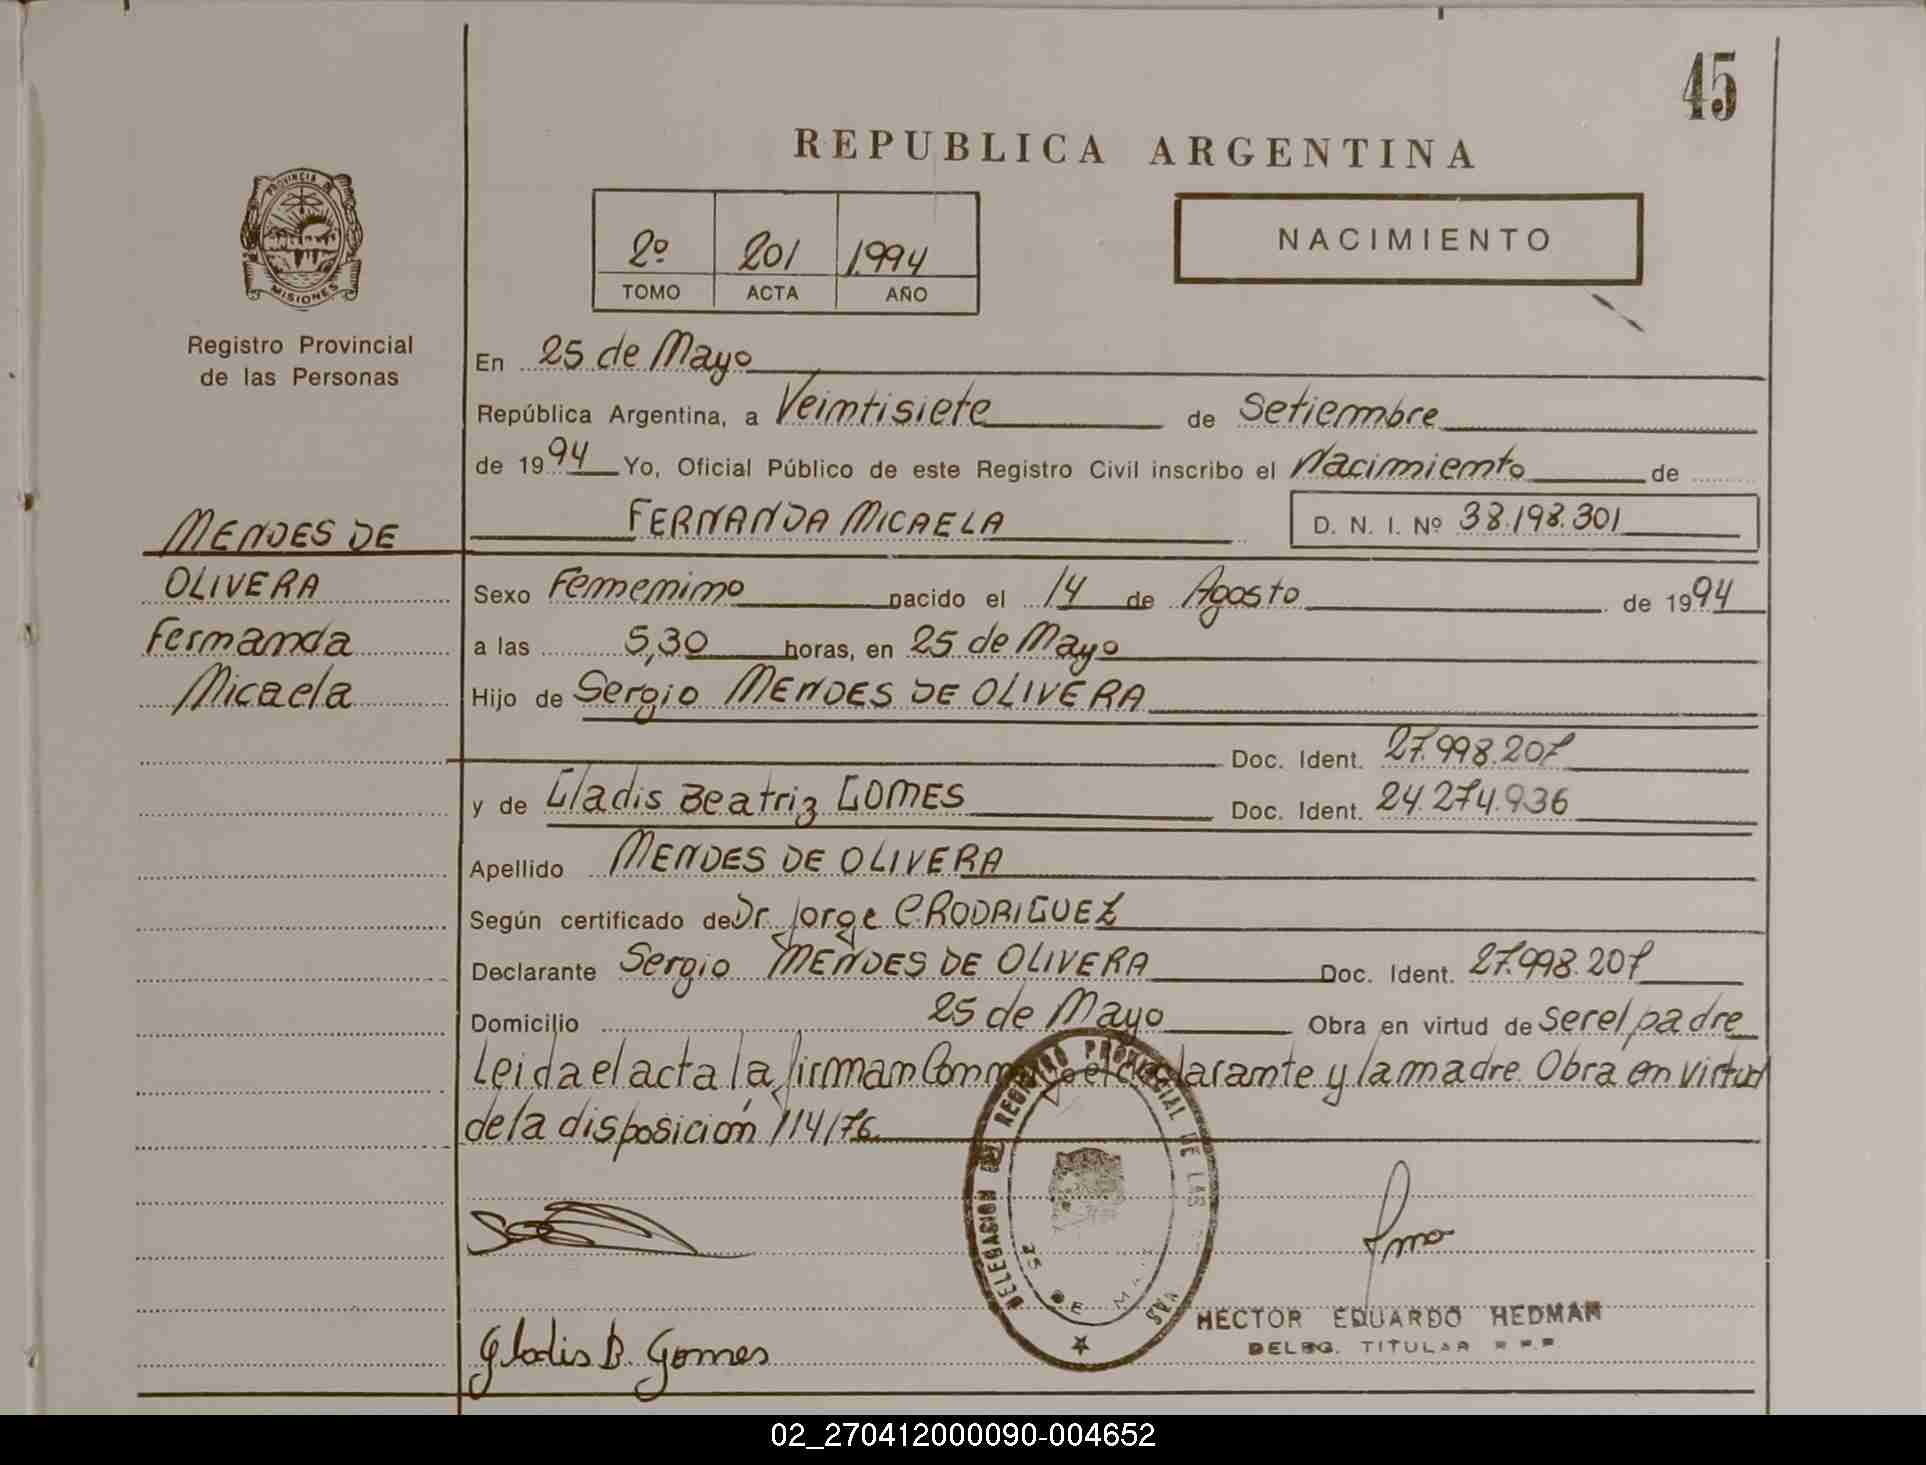 45
REPUBLICA ARGENTINA
PROVINCIA DE
MISIONES
Registro Provincial
de las Personas
2º 201 1994
TOMO ACTA AÑO
NACIMIENTO
En 25 de Mayo
República Argentina, a Veintisiete de Setiembre
de 1994 Yo, Oficial Público de este Registro Civil inscribo el Nacimiento de
FERNANDA MICAELA D. N. I. Nº 38.198.301
MENDES DE
OLIVERA
Fernanda
Micaela
Sexo Femenino nacido el 14 de Agosto de 1994
a las 5,30 horas, en 25 de Mayo
Hijo de Sergio MENDES DE OLIVERA
Doc. Ident. 27.998.207
y de Gladis Beatriz GOMES Doc. Ident. 24.274.936
Apellido MENDES DE OLIVERA
Según certificado de Dr. Jorge C. RODRIGUEZ
Declarante Sergio MENDES DE OLIVERA Doc. Ident. 27.998.207
Domicilio 25 de Mayo Obra en virtud de ser el padre
Leida el acta la firman Conmigo el declarante y la madre. Obra en virtud
de la disposición 114/76
DELEGACION DEL REGISTRO PROVINCIAL DE LAS
25 DE MAYO
Gladis B. Gomes
HECTOR EDUARDO HEDMAN
DELEG. TITULAR R.P.P.
02_270412000090-004652